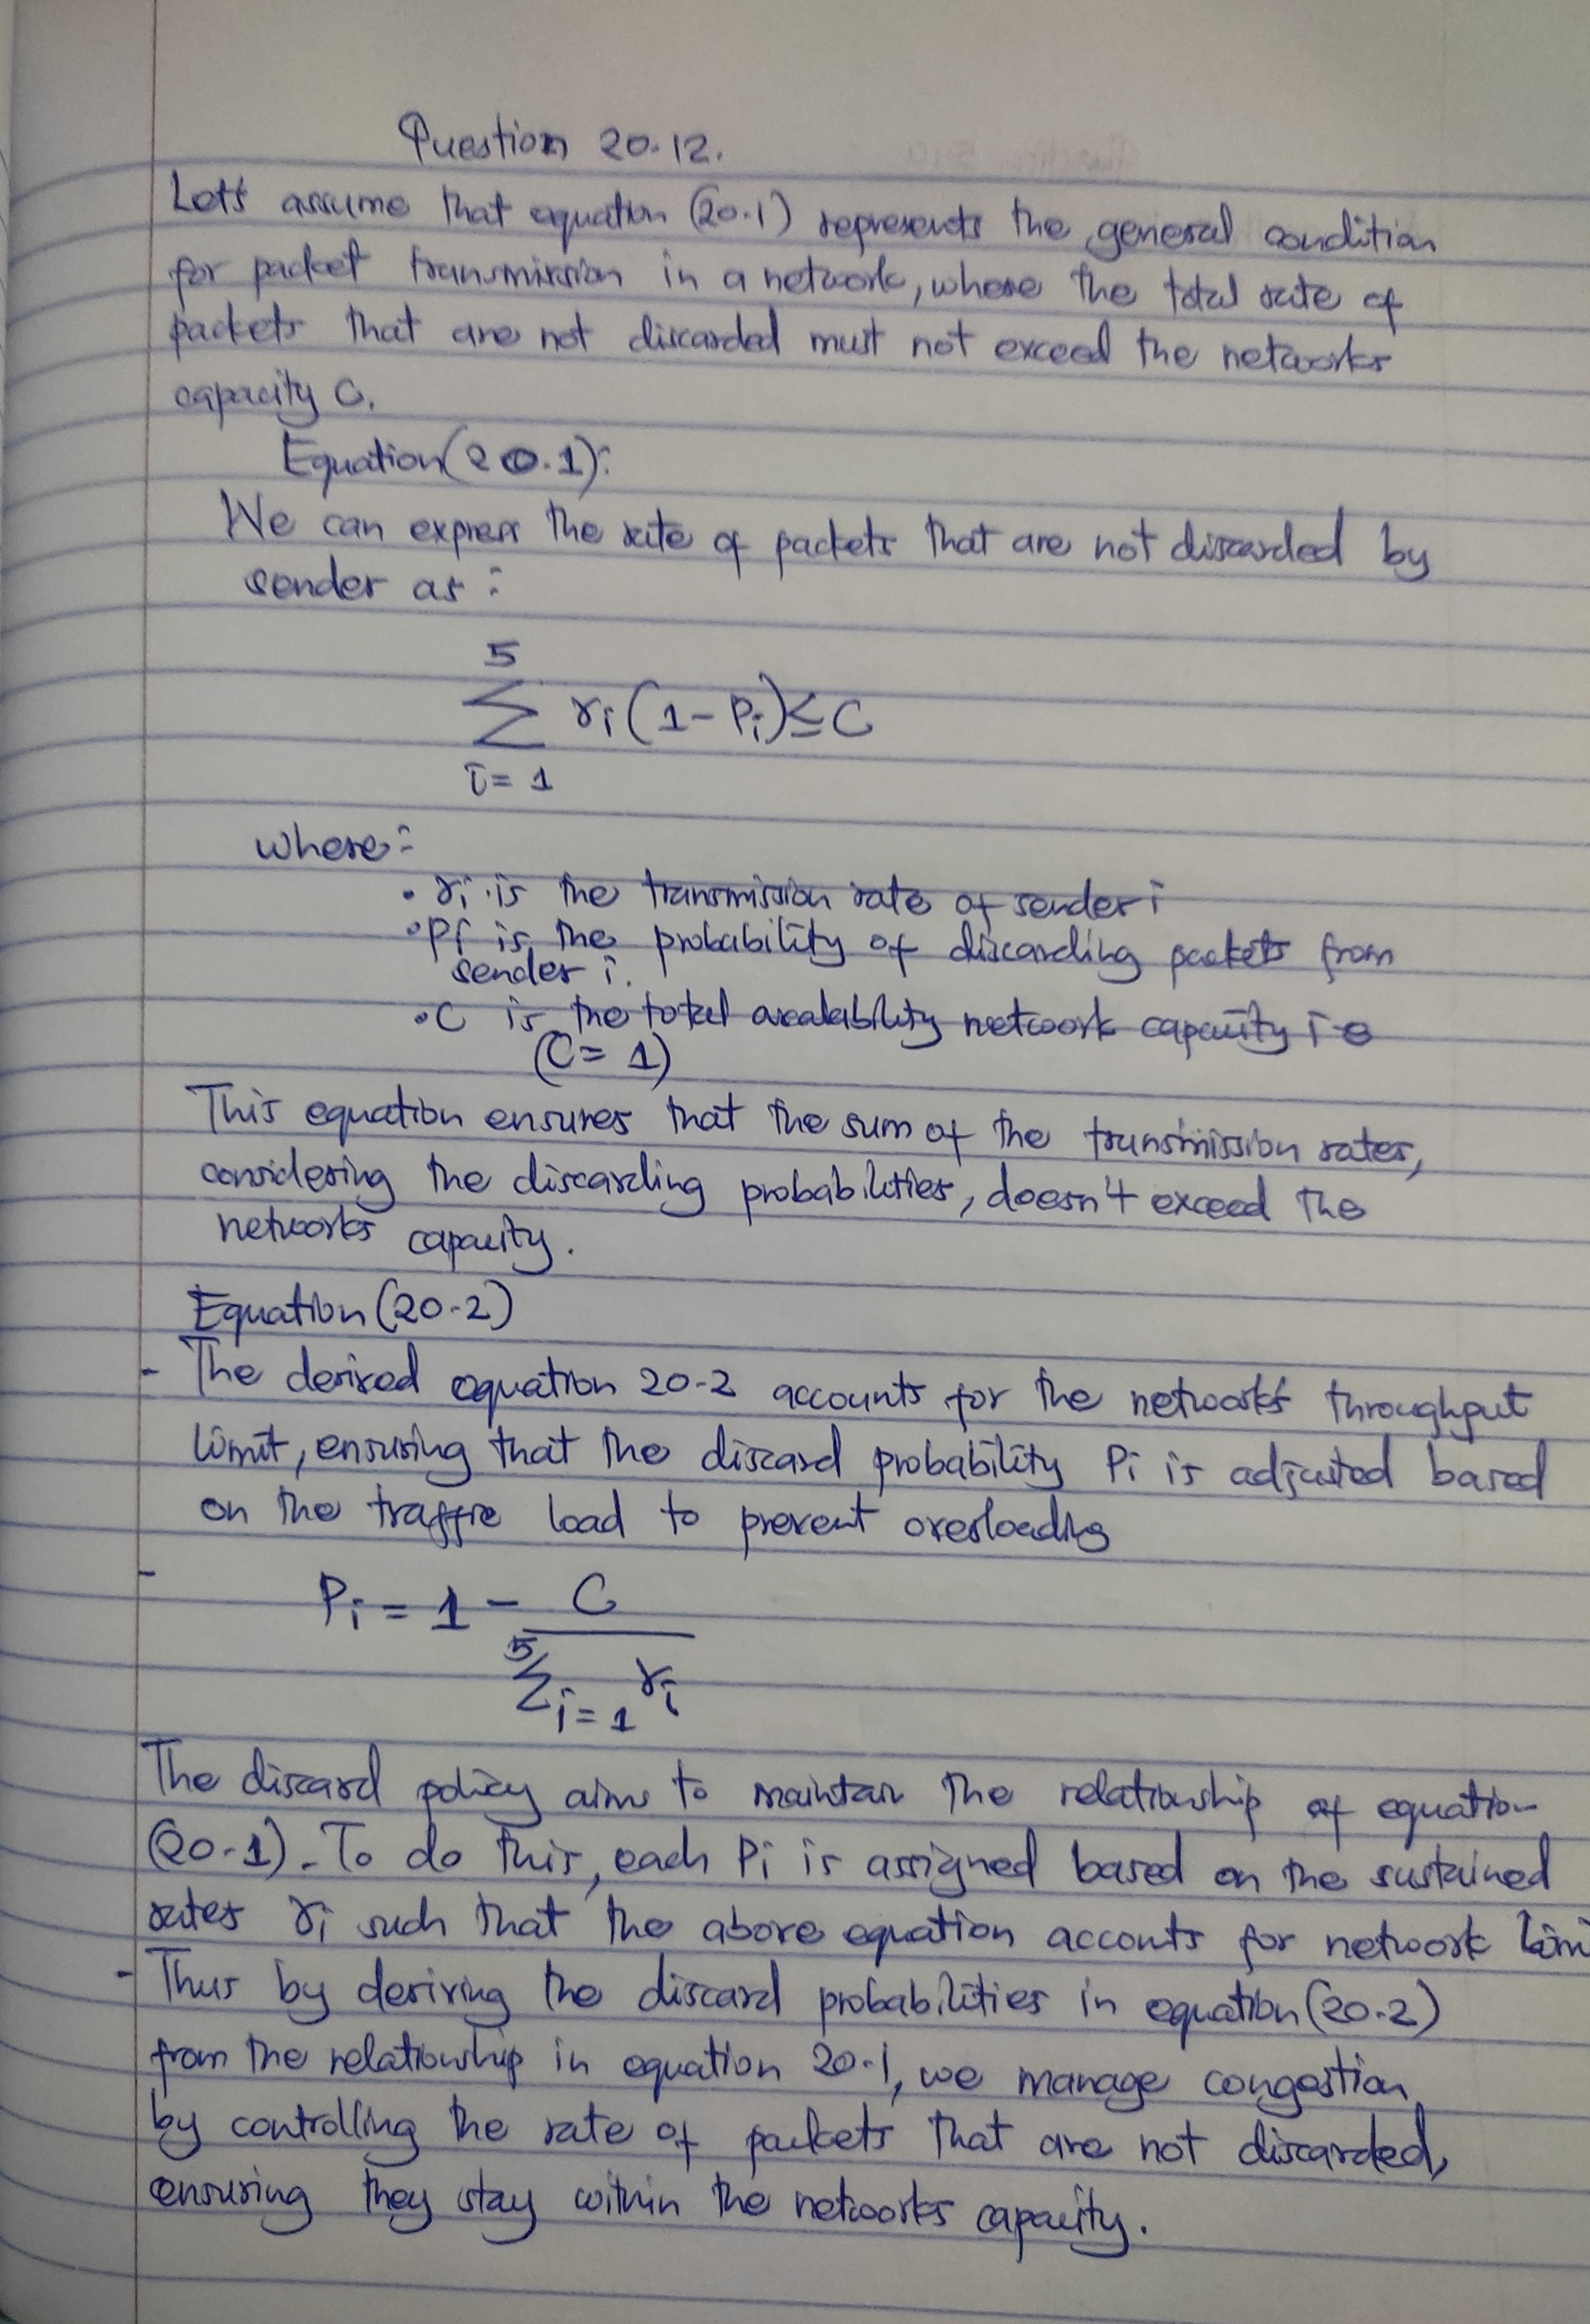 Question 20.12.
Let's assume that equation (20.1) represents the general condition
for packet transmission in a network, where the total rate of
packets that are not discarded must not exceed the networks
capacity C.
Equation (20.1):
We can express the rate of packets that are not discarded by
sender as :
5
∑ ri (1 - Pi) ≤ C
i = 1
where :
• ri is the transmission rate of sender i
• Pi is the probability of discarding packets from
sender i.
• C is the total availability network capacity i.e
(C = 1)
This equation ensures that the sum of the transmission rates,
considering the discarding probabilities, doesn't exceed the
networks capacity.
Equation (20.2)
- The derived equation 20.2 accounts for the network's throughput
limit, ensuring that the discard probability Pi is adjusted based
on the traffic load to prevent overloading
- Pi = 1 - C
5
∑ i = 1 ri
The discard policy aims to maintain the relationship of equation
(20.1). To do this, each Pi is assigned based on the sustained
rates ri such that the above equation acconts for network
- Thus by deriving the discard probabilities in equation (20.2)
from the relationship in equation 20.1, we manage congestion
by controlling the rate of packets that are not discarded,
ensuring they stay within the networks capacity.